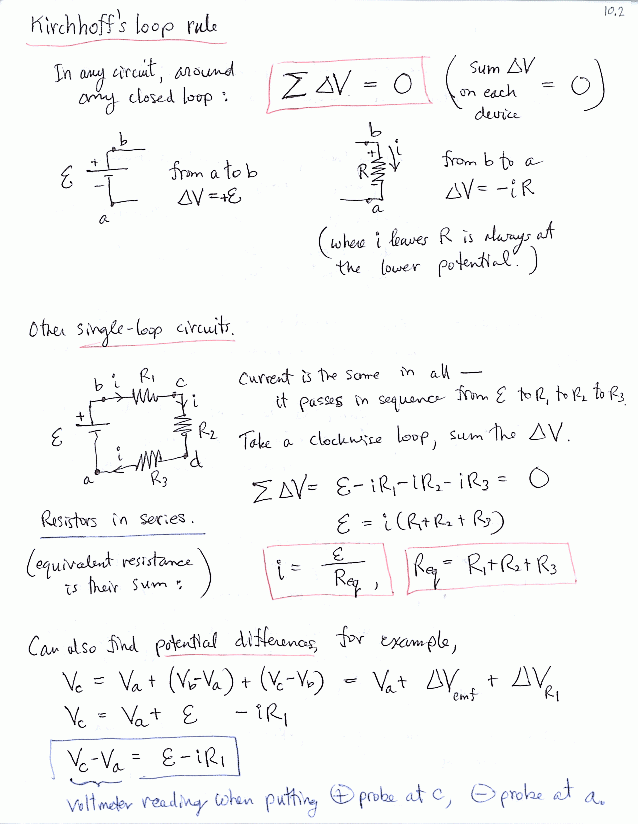 10.2
Kirchhoff's loop rule
In any circuit, around
any closed loop :
∑ ΔV = 0
( sum ΔV on each device = 0 )
b
ε
+
-
a
from a to b
ΔV = +ε
b
+
i
R
a
from b to a
ΔV = -iR
(where i leaves R is always at
the lower potential.)
Other single-loop circuits.
b i R1 c
+
i
ε
R2
i
a R3 d
Current is the same in all —
it passes in sequence from ε to R1 to R2 to R3.
Take a clockwise loop, sum the ΔV.
∑ ΔV = ε - iR1 - iR2 - iR3 = 0
ε = i(R1+R2+R3)
Resistors in series.
(equivalent resistance
is their sum : )
i = ε/Req ,
Req = R1+R2+R3
Can also find potential differences, for example,
Vc = Va + (Vb-Va) + (Vc-Vb) = Va + ΔVemf + ΔVR1
Vc = Va + ε - iR1
Vc-Va = ε - iR1
voltmeter reading when putting ⊕ probe at c, ⊖ probe at a.